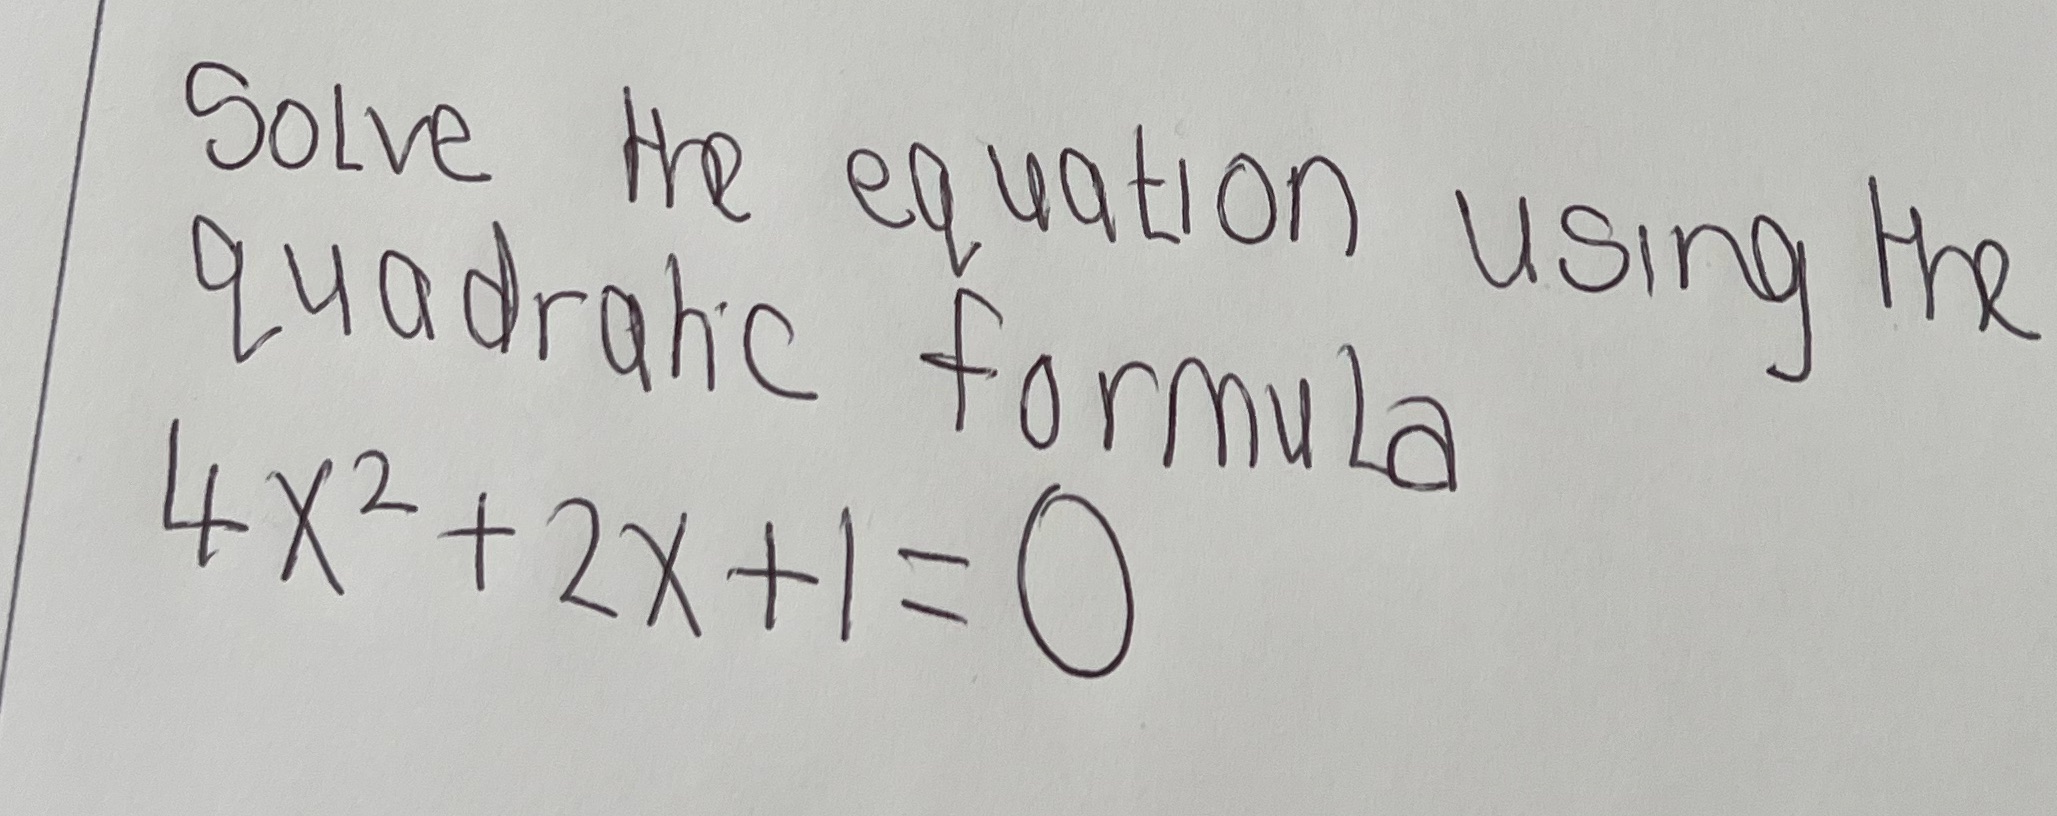 Solve the equation using the
quadratic formula
4x² + 2x + 1 = 0